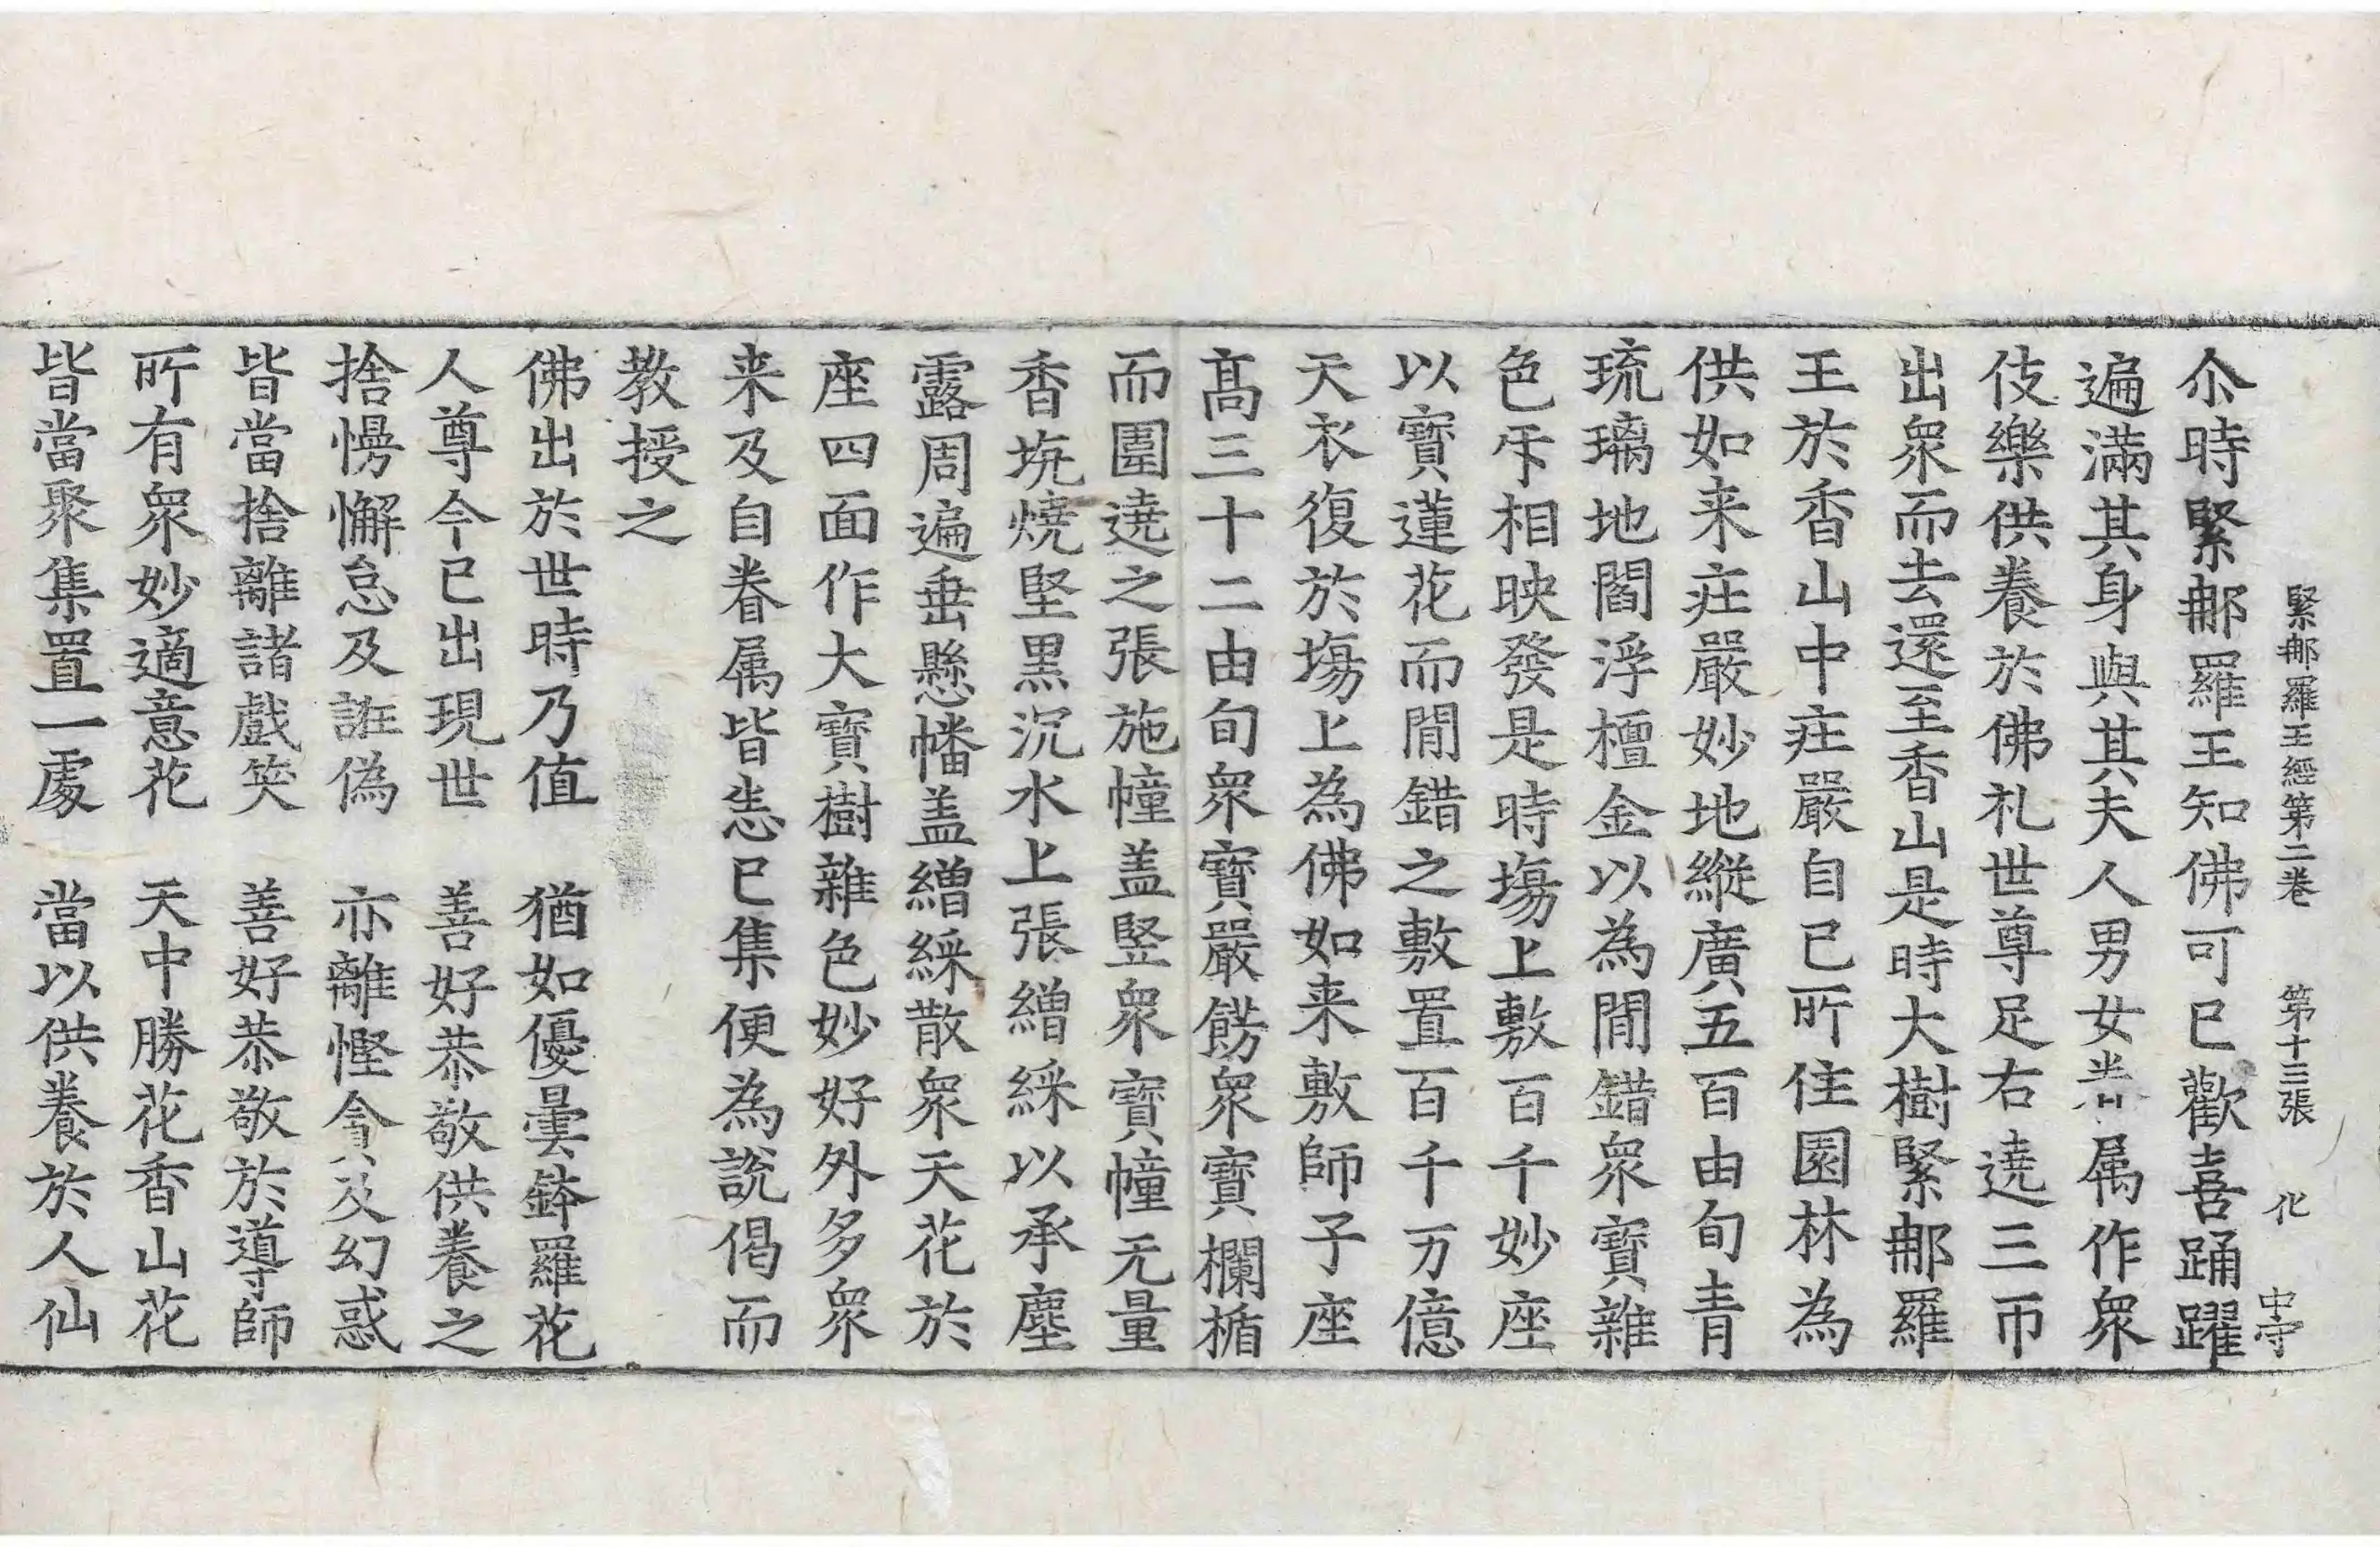 緊那羅王經第二卷 第十三張 化 中守
尒時緊那羅王知佛可已歡喜踊躍
遍滿其身與其夫人男女眷属作衆
伎樂供養於佛礼世尊足右遶三帀
出衆而去還至香山是時大樹緊那羅
王於香山中庄嚴自已所住園林為
供如来庄嚴妙地縱廣五百由旬青
琉璃地閻浮檀金以為間錯衆寶雜
色㸦相映發是時塲上敷百千妙座
以寶蓮花而間錯之敷置百千万億
天衣復於塲上為佛如来敷師子座
髙三十二由旬衆寶嚴餝衆寶欄楯
而圍遶之張施幢盖竪衆寶幢无量
香埦燒堅黒沉水上張繒綵以承塵
露周遍垂懸幡盖繒綵散衆天花於
座四面作大寶樹雜色妙好外多衆
来及自眷属皆悉已集便為說偈而
教授之
佛出於世時乃值 猶如優曇鉢羅花
人尊今已出現世 善好恭敬供養之
捨慢懈怠及誑偽 亦離慳貪及幻惑
皆當捨離諸戲笑 善好恭敬於導師
所有衆妙適意花 天中勝花香山花
皆當聚集置一處 當以供養於人仙